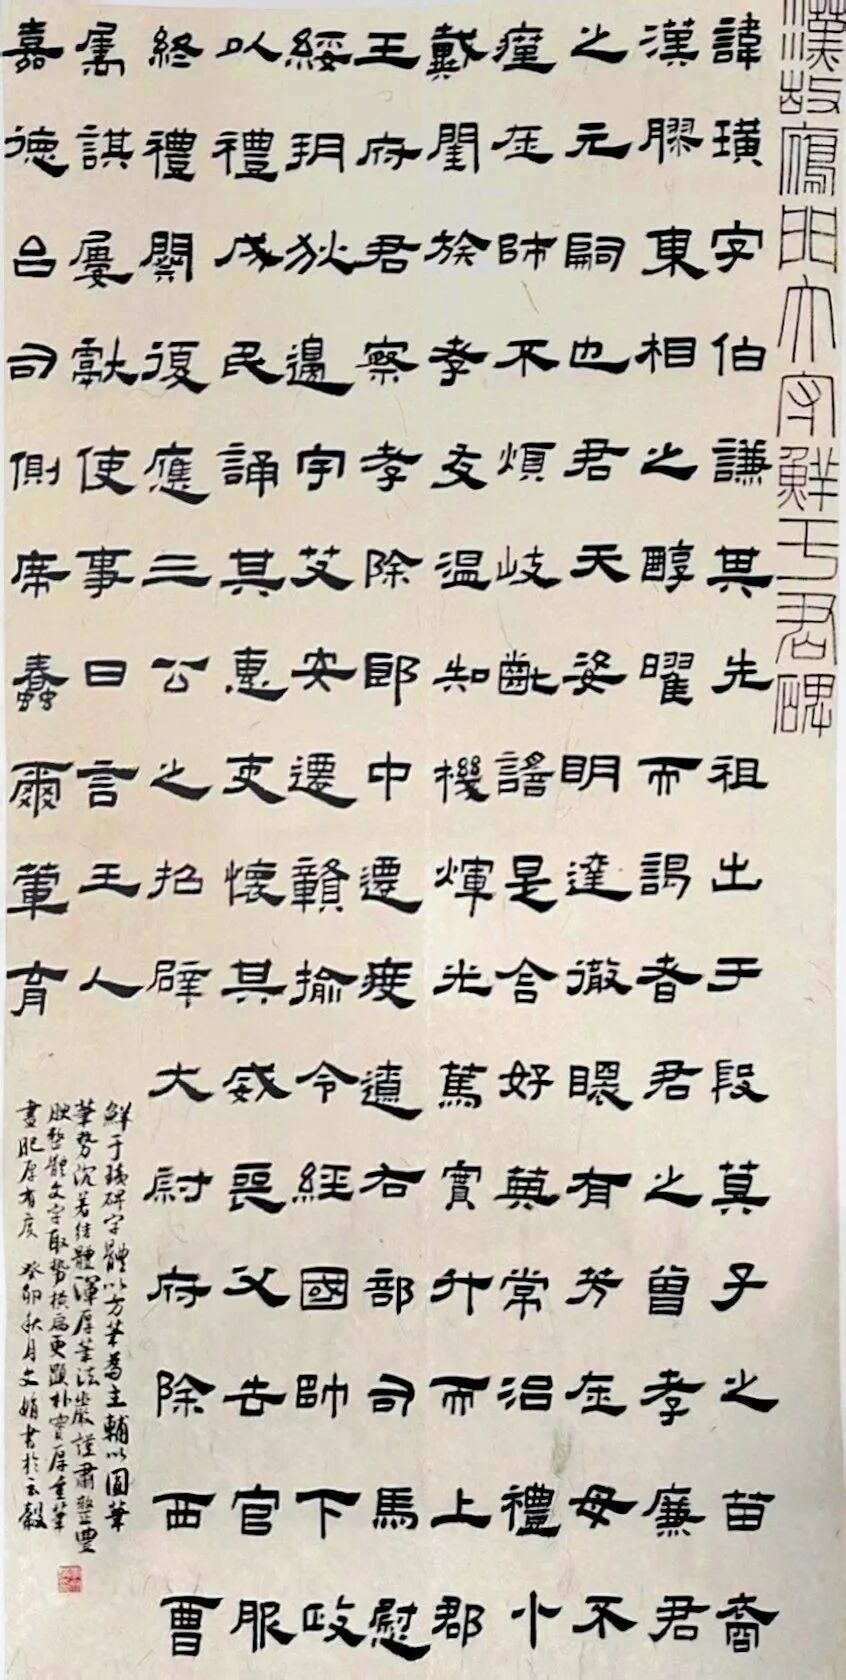 漢故鴈門太守鮮于君碑
諱璜字伯謙其先祖出于殷箕子之苗裔
漢膠東相之醇曜而謁者君之曾孝廉君
之元嗣也君天姿明達徹睘有芳在母不
瘽在師不煩岐齔謠是含好典常治禮小
戴閨族孝友溫知機煇光篤實升而上郡
王府君察孝除郎中遷度遼右部司馬慰
綏朔狄邊宇艾安遷贛揄令經國帥下政
以禮成民誦其惠吏懷其威喪父去官服
終禮闋復應三公之招辟大尉府除西曹
屬諆屢獻使事日言王人
嘉德呂司側席蠢爾葷育
鮮于璜碑字體以方筆為主輔以圓筆
筆勢沉著結體渾厚筆法嚴謹肅整豐
腴整體文字取勢橫扁更顯朴實厚重筆
畫肥厚有度 癸卯秋月文娟書於云穀